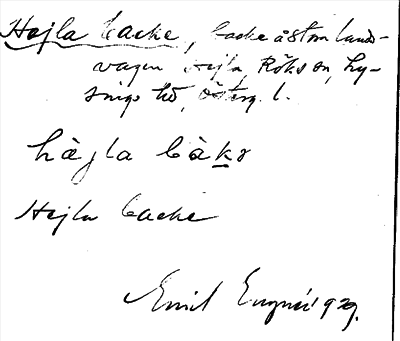 Hejla backe, backe åt om lands-
vägen Hejla, Röks sn, Ly-
sings hd, Österg. l.
hàjla bàkə
Hejla backe
Emil 1929.